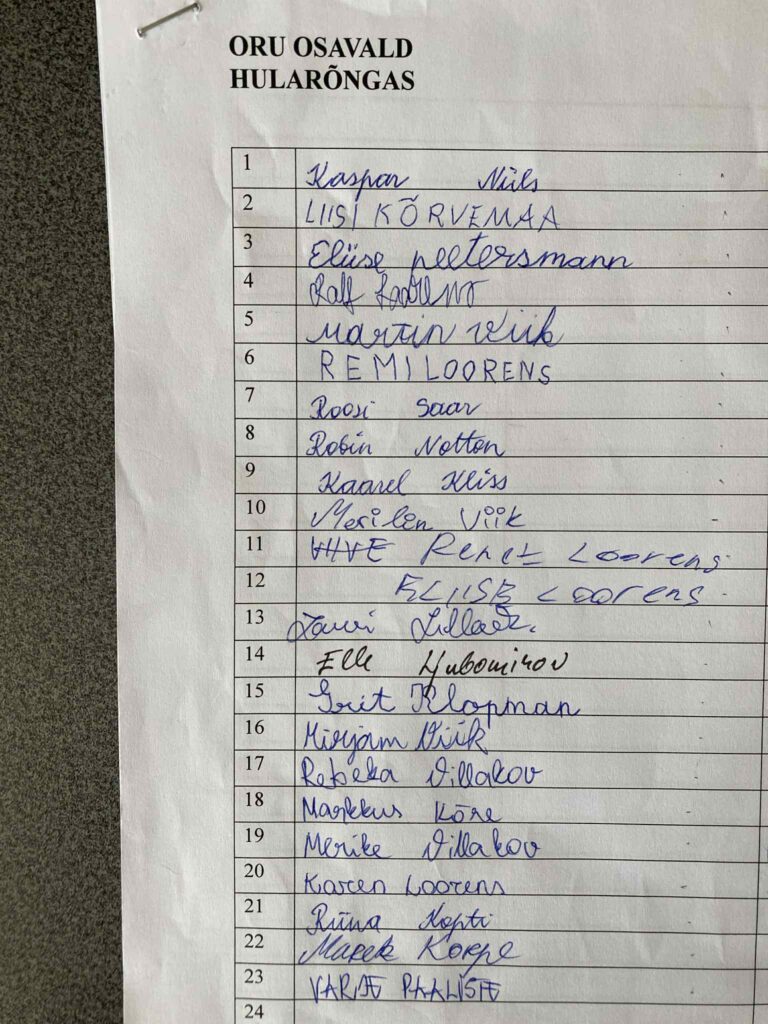 ORU OSAVALD
HULARÕNGAS
1 Kaspar Niils
2 LIISI KÕRVEMAA
3 Eliise peetersmann
4 Ralf
5 Martin Viik
6 REMI LOORENS
7 Roosi Saar
8 Robin Notton
9 Kaarel Kliss
10 Merilin Viik
11 Renet Loorens
12 ELIISE Loorens
13 Lauri
14 Elle Ljubomirov
15 Grit Klopman
16 Mirjam Viik
17 Rebeka Villakov
18 Markkus Kõre
19 Merike Villakov
20 Karen Loorens
21 Riina Kopti
22 Marek Korpe
23 VARJE PAALISTE
24